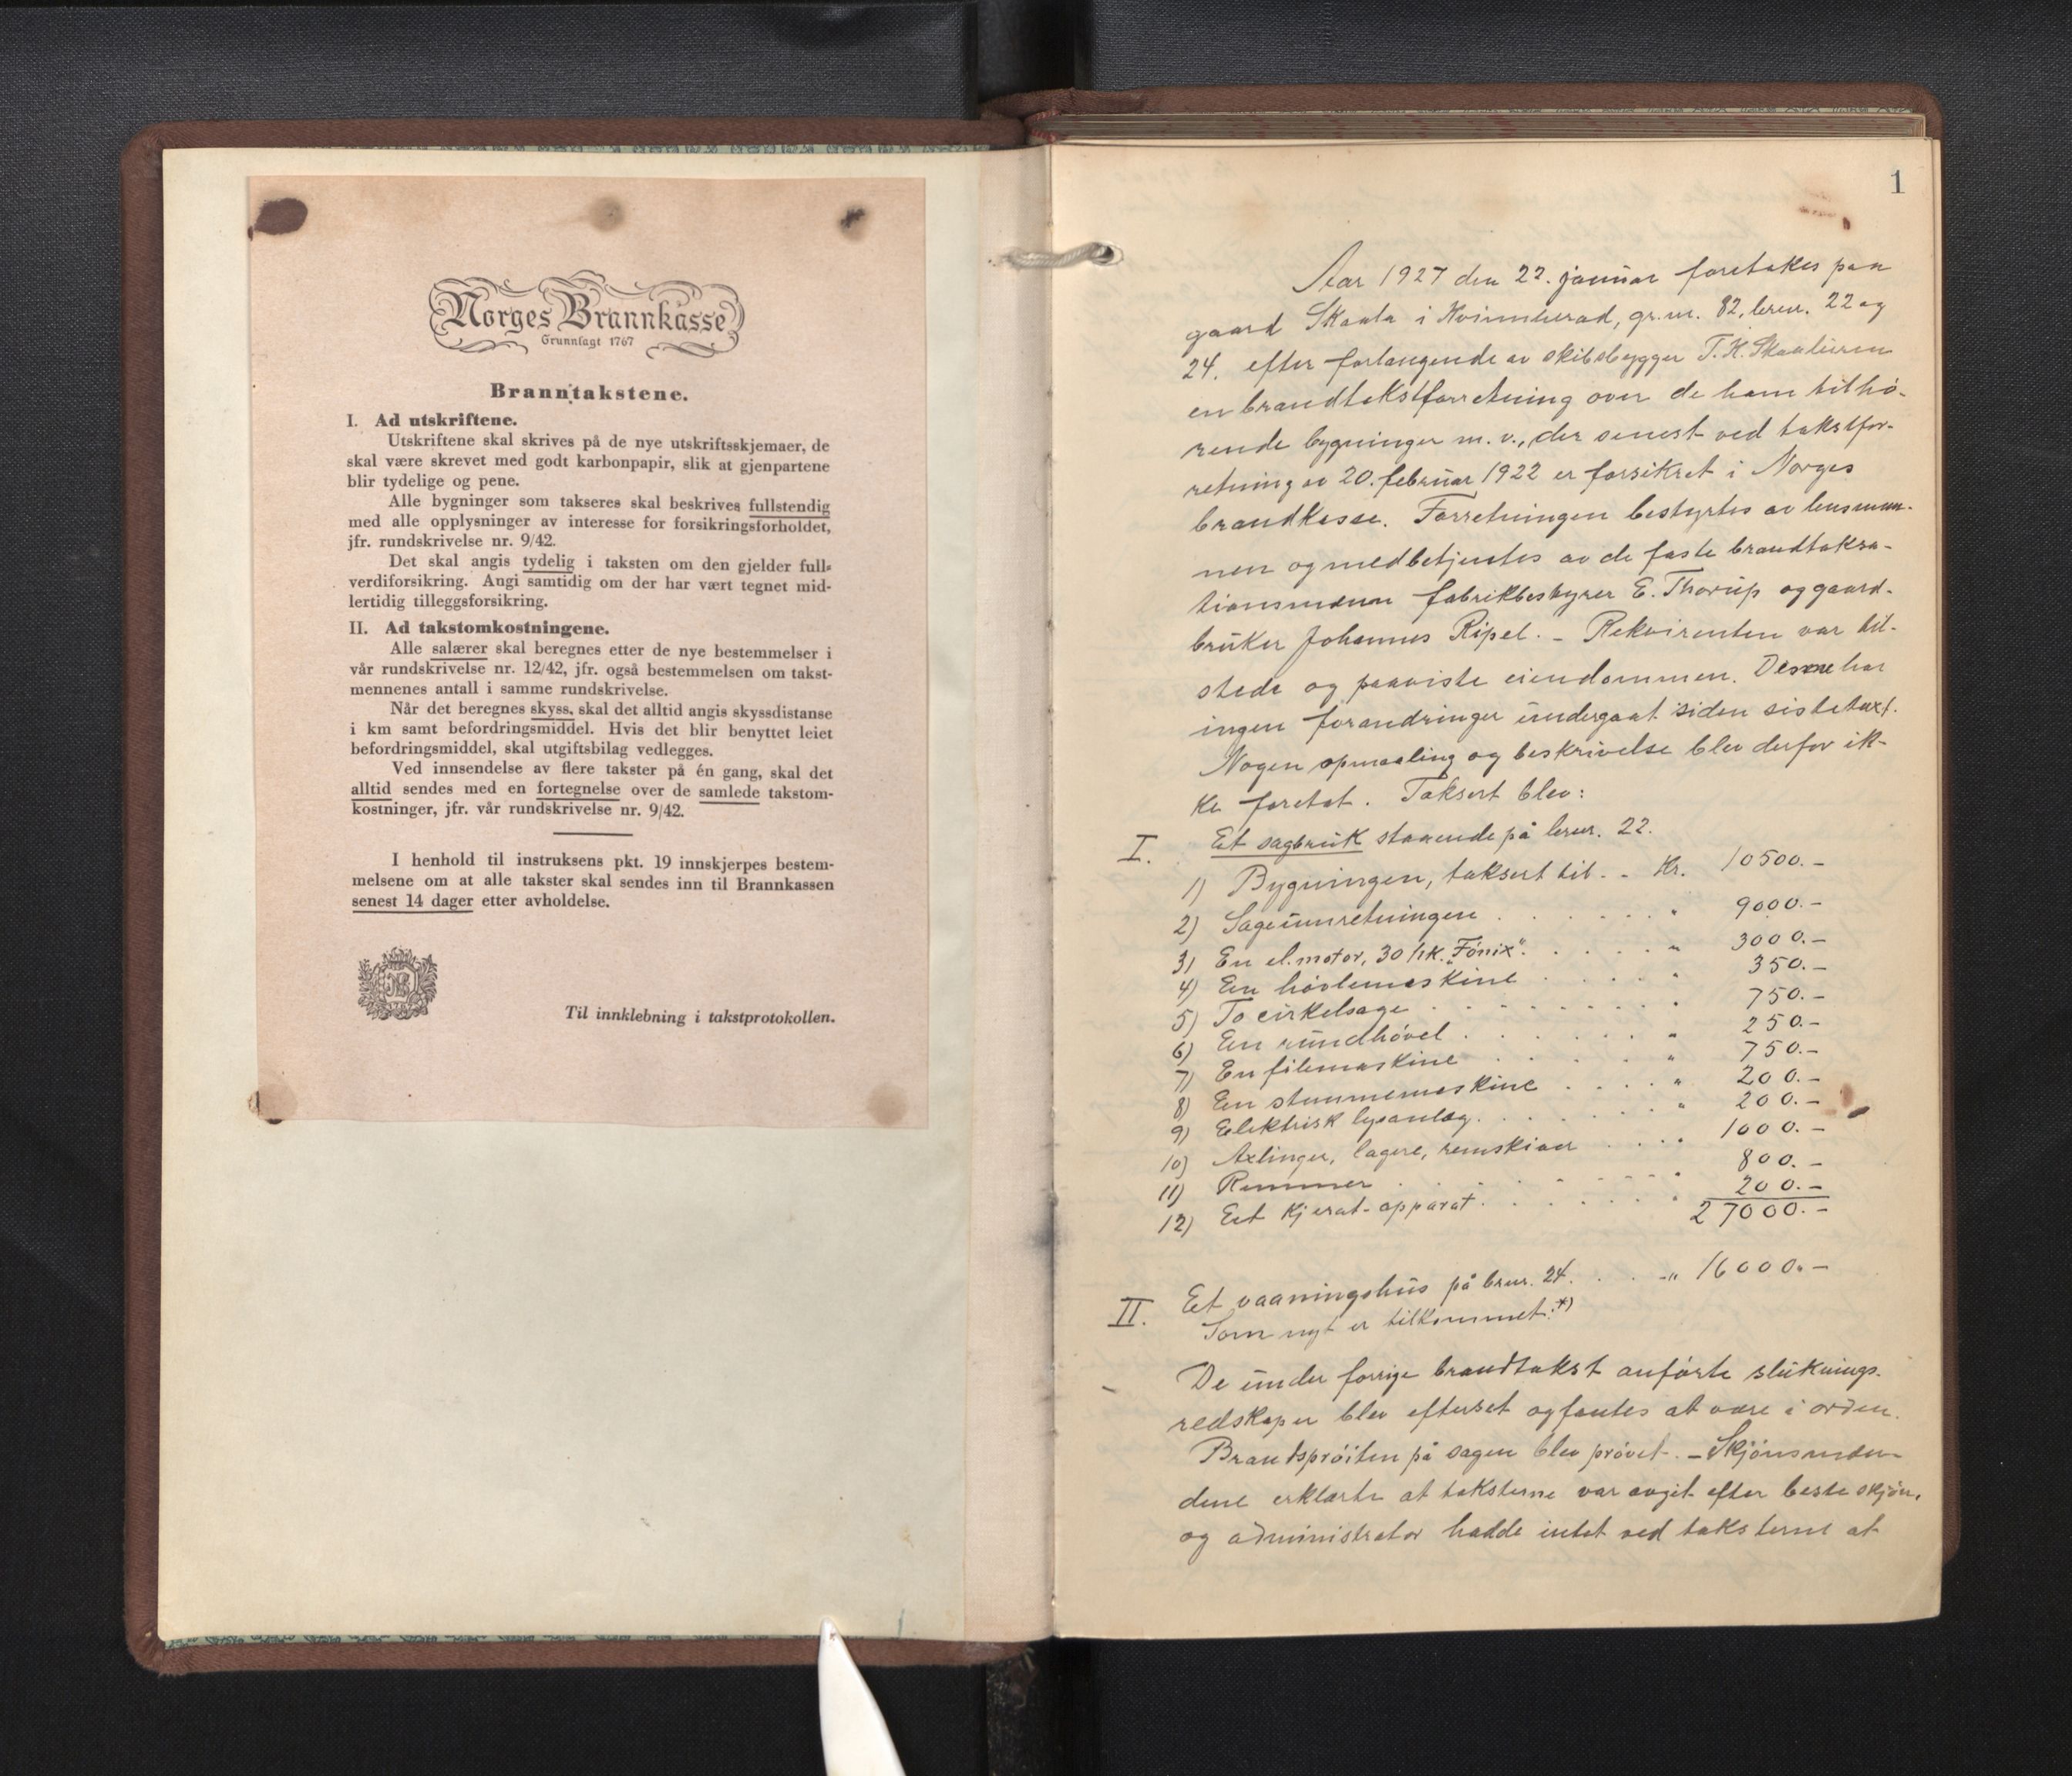 Norges Brannkasse
Grunnlagt 1767
Branntakstene.
I. Ad utskriftene.
Utskriftene skal skrives på de nye utskriftsskjemaer, de
skal være skrevet med godt karbonpapir, slik at gjenpartene
blir tydelige og pene.
Alle bygninger som takseres skal beskrives fullstendig
med alle opplysninger av interesse for forsikringsforholdet,
jfr. rundskrivelse nr. 9/42.
Det skal angis tydelig i taksten om den gjelder full-
verdiforsikring. Angi samtidig om der har vært tegnet mid-
lertidig tilleggsforsikring.
II. Ad takstomkostningene.
Alle salærer skal beregnes etter de nye bestemmelser i
vår rundskrivelse nr. 12/42, jfr. også bestemmelsen om takst-
mennenes antall i samme rundskrivelse.
Når det beregnes skyss, skal det alltid angis skyssdistanse
i km samt befordringsmiddel. Hvis det blir benyttet leiet
befordringsmiddel, skal utgiftsbilag vedlegges.
Ved innsendelse av flere takster på én gang, skal det
alltid sendes med en fortegnelse over de samlede takstom-
kostninger, jfr. vår rundskrivelse nr. 9/42.
I henhold til instruksens pkt. 19 innskjerpes bestem-
melsene om at alle takster skal sendes inn til Brannkassen
senest 14 dager etter avholdelse.
Til innklebning i takstprotokollen.
1
Aar 1927 den 22. januar foretokes paa
gaard Skaala i Kvinnherad, gr.nr. 82, brnr. 22 og
24. efter forlangende av skibsbygger T. H. Skaaluren
en brandtakstforretning over de ham tilhø-
rende bygninger m.v., der senest ved takstfor-
retning av 20. februar 1922 er forsikret i Norges
brandkasse. Forretningen bestyrtes av lensman-
nen og medbetjentes av de faste brandtaksa-
tionsmænn fabrikbestyrer E. Thorup og gaard-
bruker Johannes Ripel. - Rekvirenten var til-
stede og paaviste eiendommen. Denne har
ingen forandringer undergaat siden siste taxt.
Nogen opmaaling og beskrivelse blev derfor ik-
ke foretat. Taksert blev:
I. Et sagbruk staaende på brnr. 22.
1) Bygningen, taksert til - - Kr. 10500.-
2) Sageinnretningen . . . . . " 9000.-
3) En el. motor, 30 hk. "Fønix" . . . . " 3000.-
4) En høvlemaskine . . . . " 350.-
5) To cirkelsage . . . . . . " 750.-
6) En rundhøvel . . . . . " 250.-
7) En filemaskine . . . . . " 750.-
8) En stemmemaskine . . . . " 200.-
9) Elektrisk lysanlæg . . . . . " 200.-
10) Axlinger, lagere, remskiver . . . . 1000.-
11) Remmer . . . . . . " 800.-
12) Et kjerat-apparat . . . . . " 200.-
27000.-
II. Et vaaningshus på brnr. 24. . . -" 16000.-
Som nyt er tilkommet: *)
De under forrige brandtakst anførte sluknings-
redskaper blev efterset og fantes at være i orden.
Brandsprøiten på sagen blev prøvet. - Skjønsmæn-
dene erklærte at taksterne var avgit efter beste skjøn,
og administrator hadde intet ved taksterne at